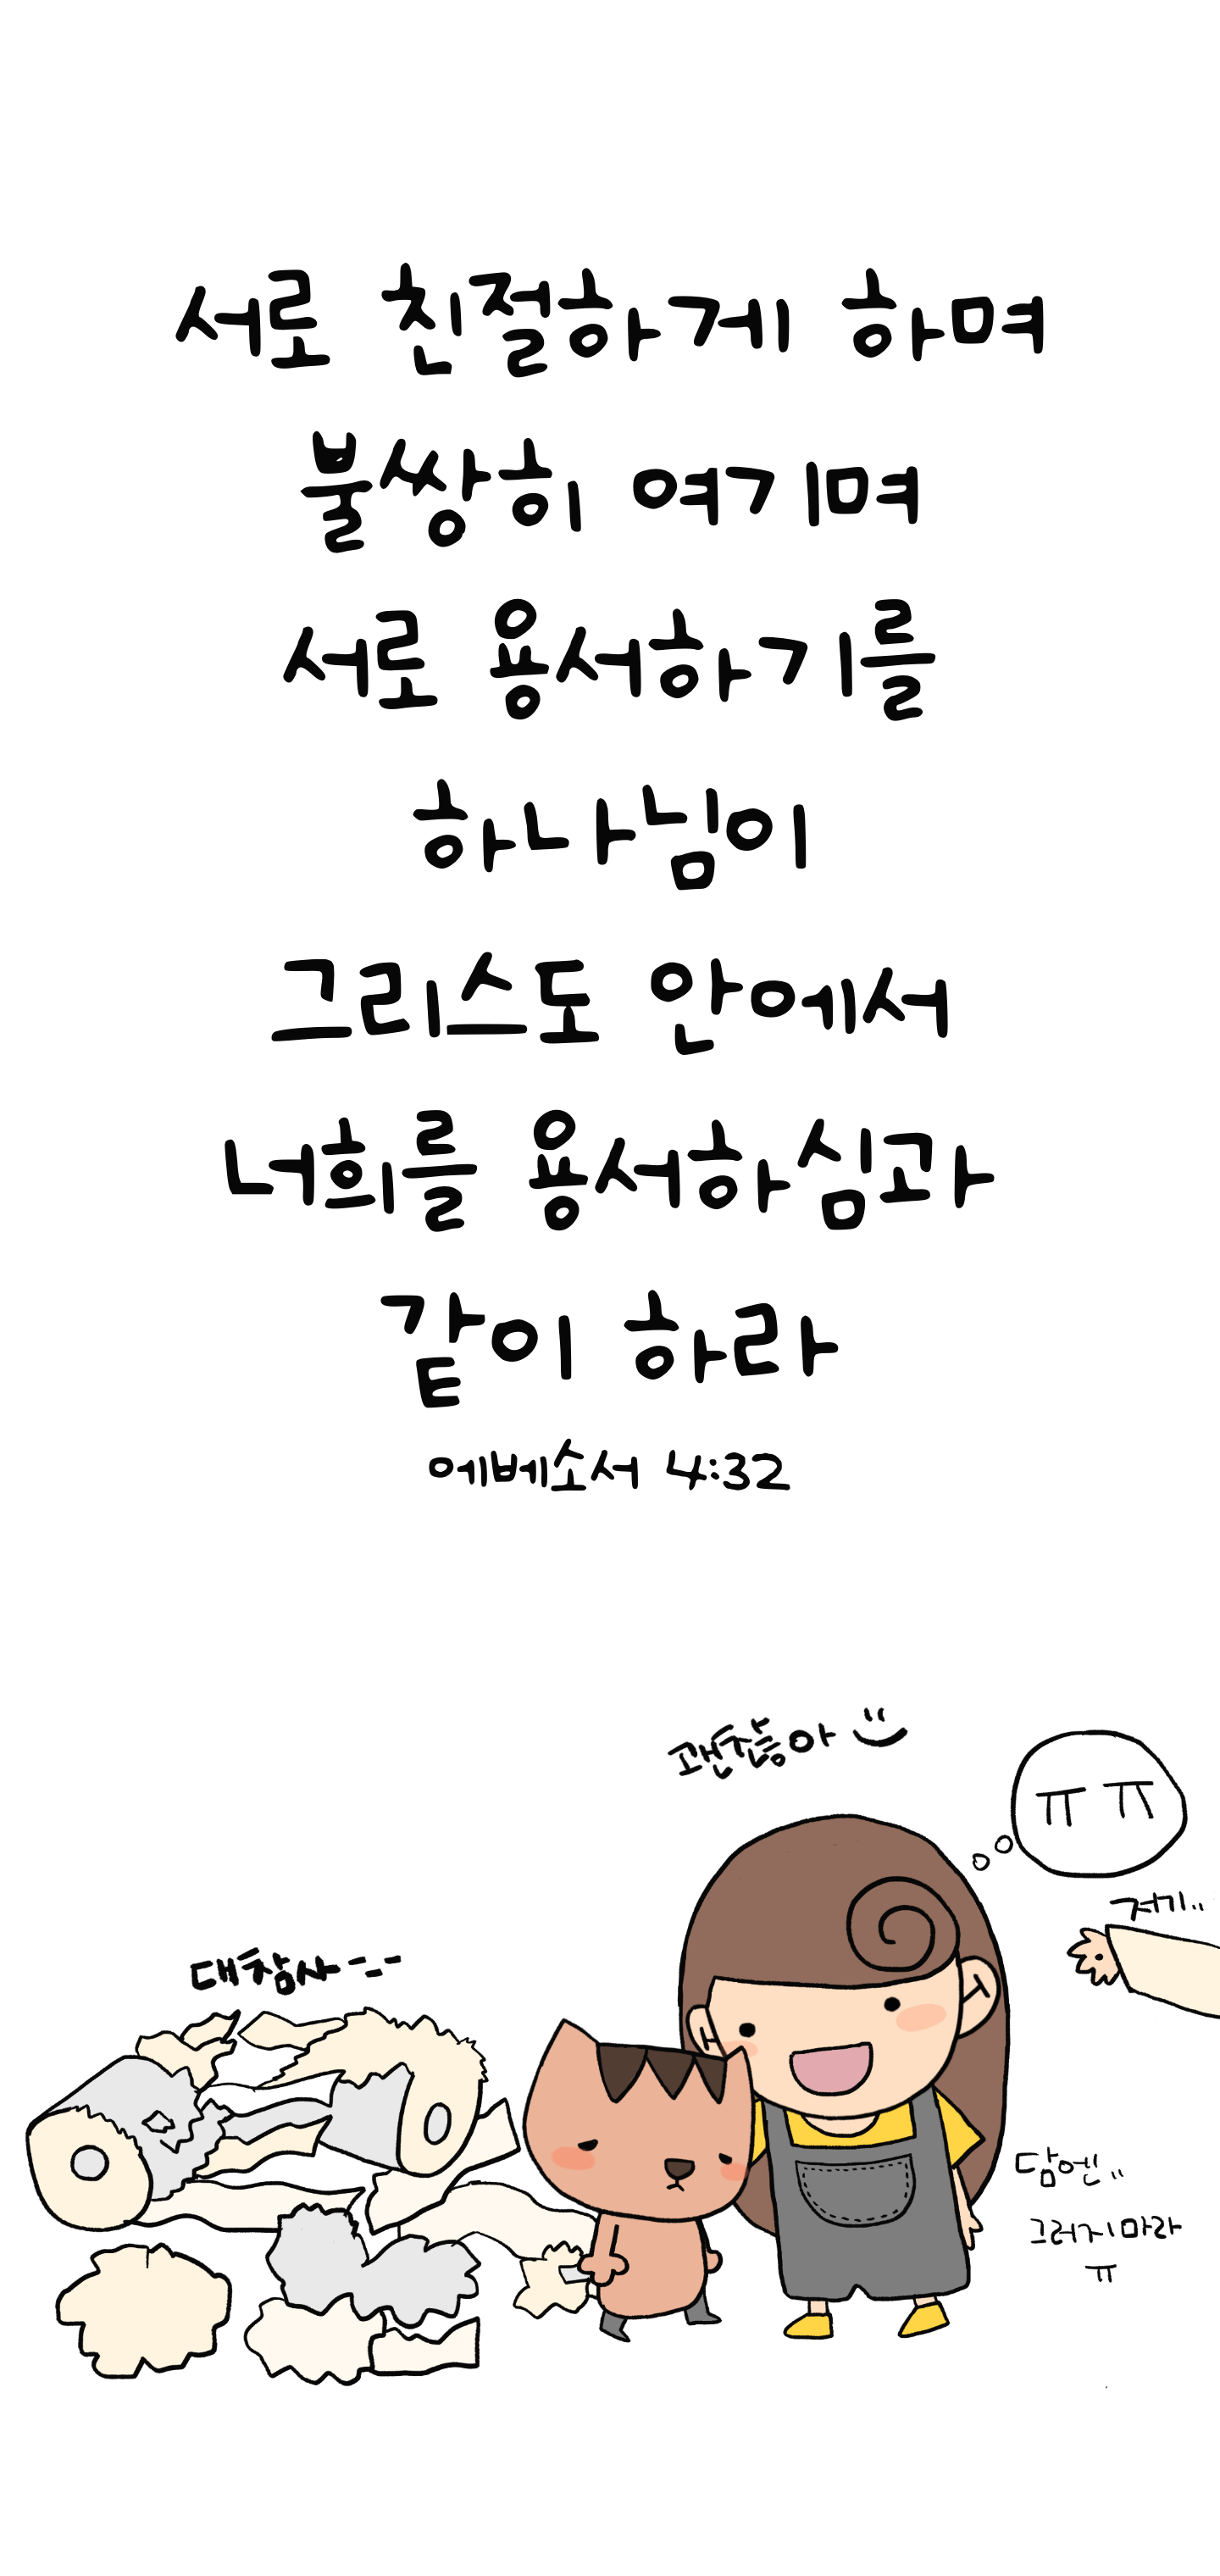 서로 친절하게 하며
불쌍히 여기며
서로 용서하기를
하나님이
그리스도 안에서
너희를 용서하심과
같이 하라
에베소서 4:32
괜찮아
ㅠㅠ
저기..
대참사---
담엔..
그러지마라
ㅠ